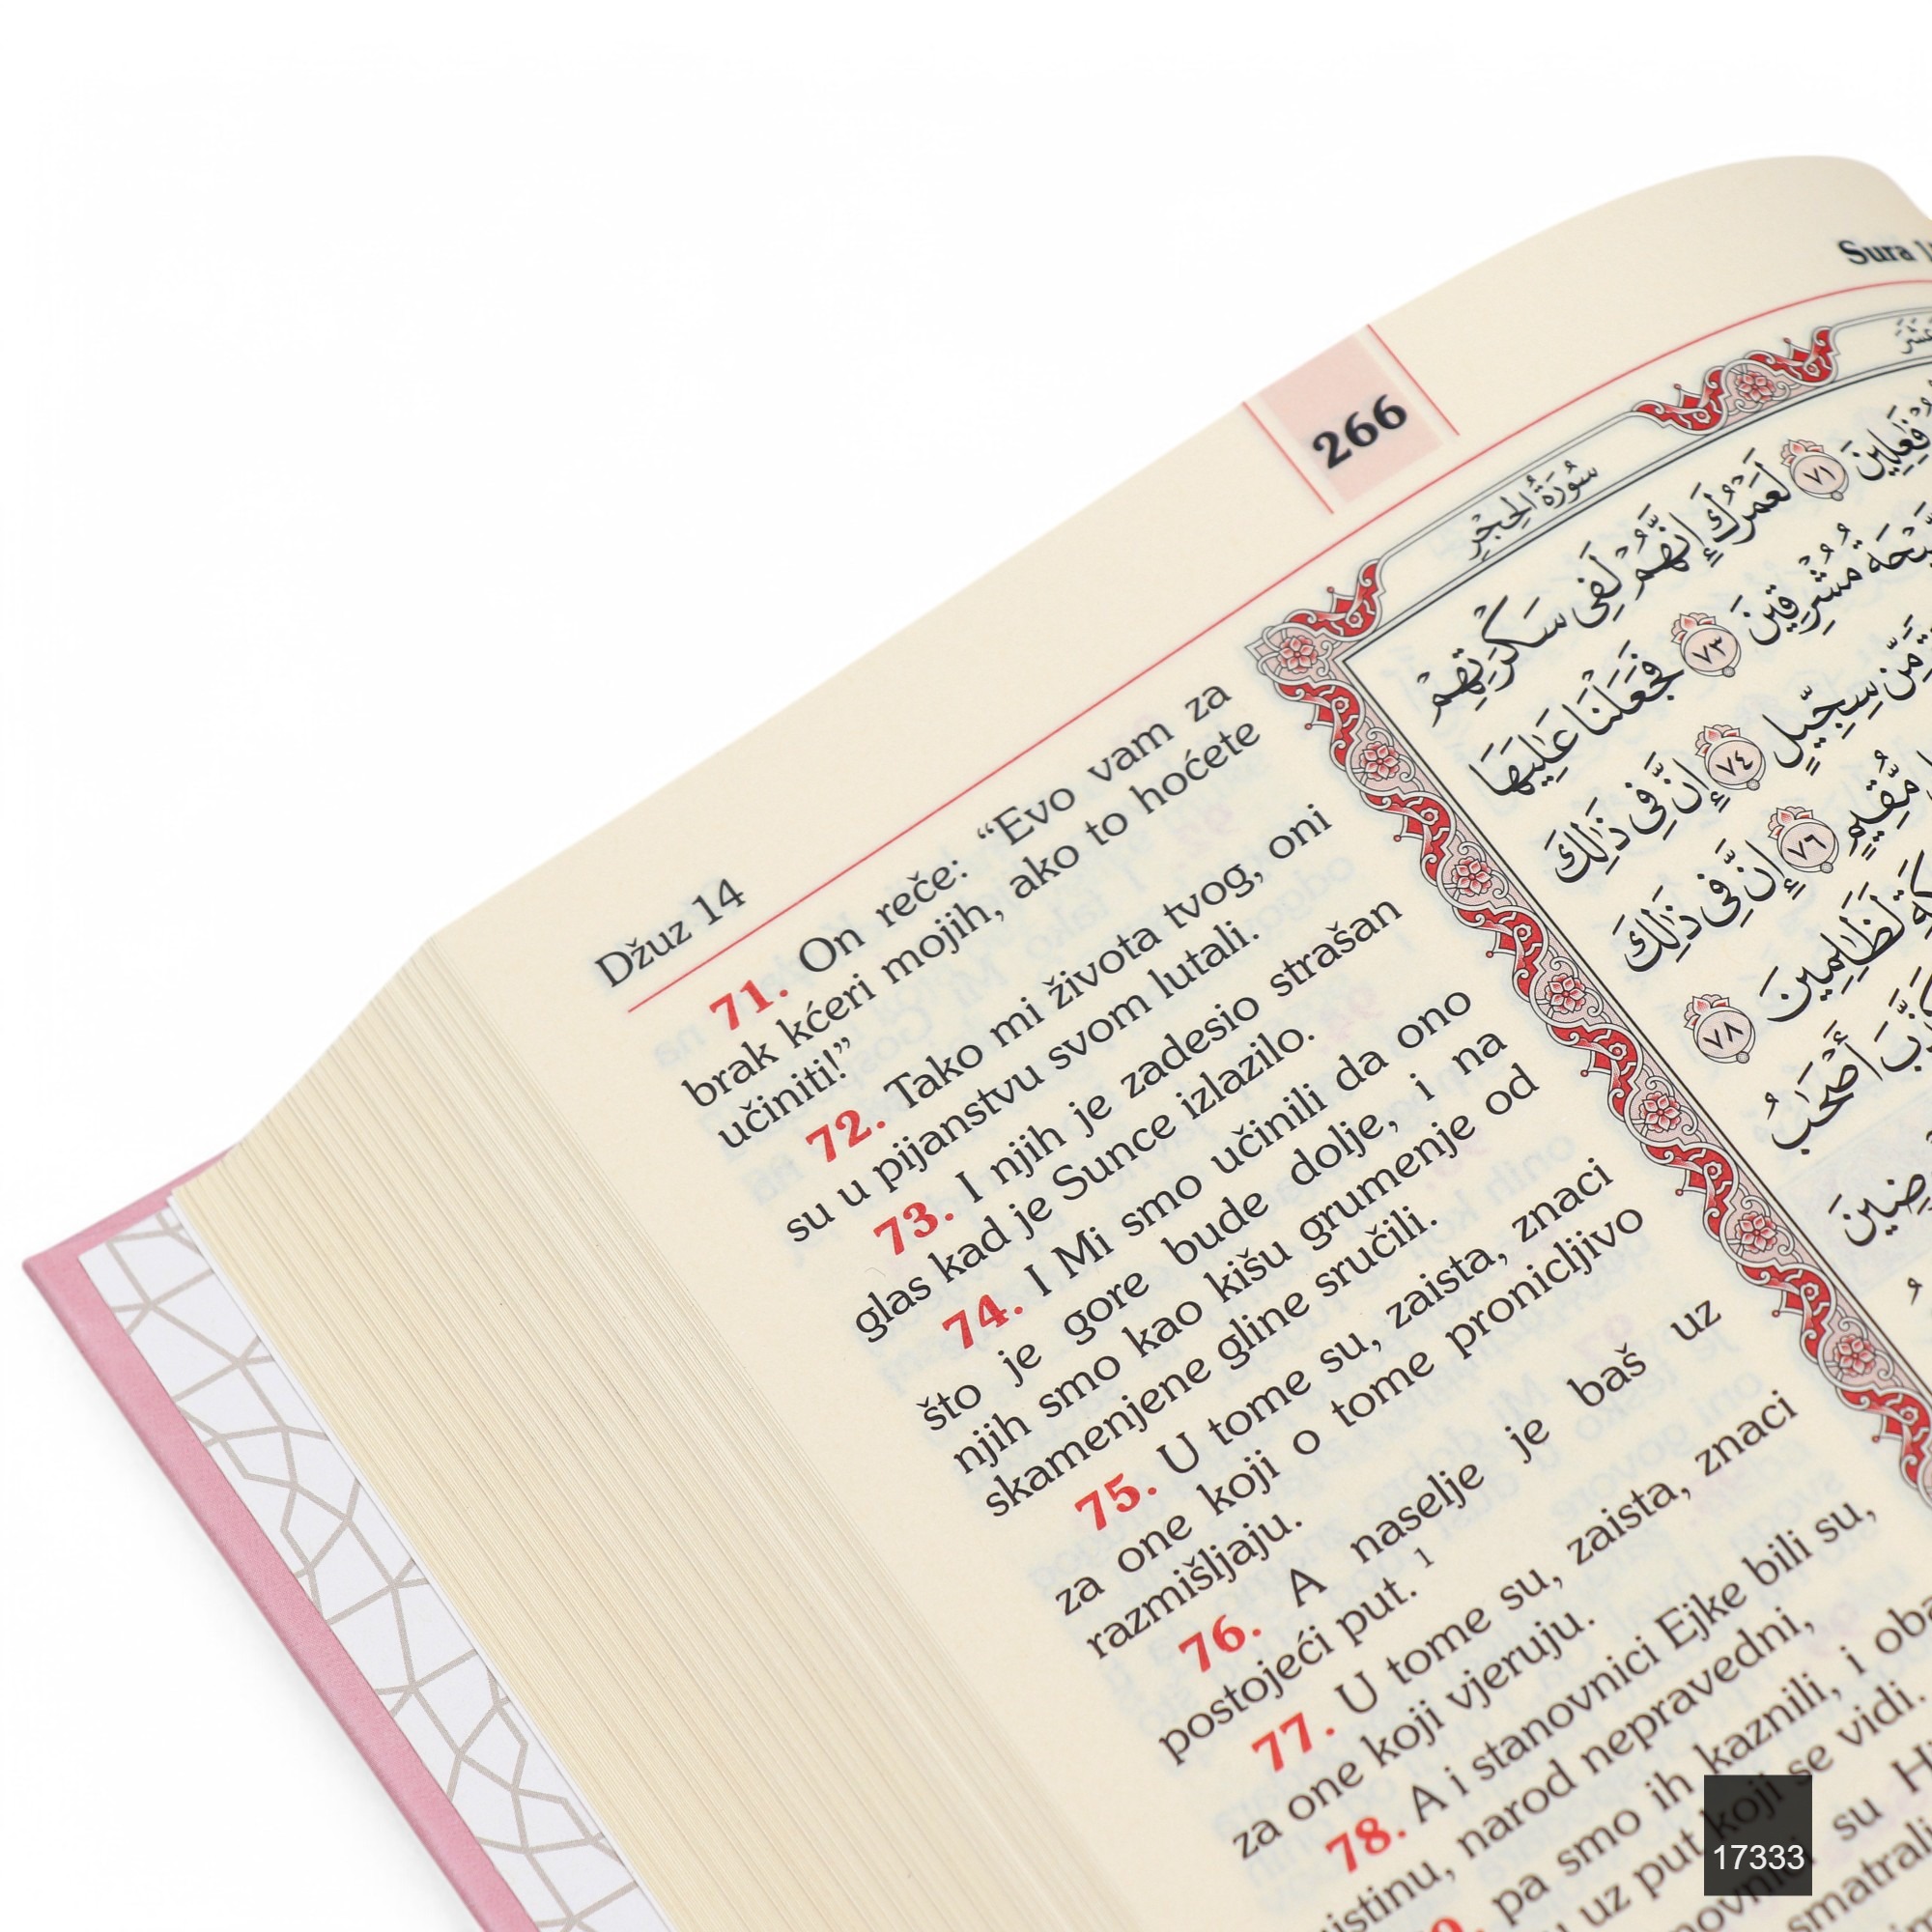 Sura
266
سُورَةُ الحِجْرِ
Džuz 14
71. On reče: “Evo vam za
brak kćeri mojih, ako to hoćete
učiniti!”
72. Tako mi života tvog, oni
su u pijanstvu svom lutali.
73. I njih je zadesio strašan
glas kad je Sunce izlazilo.
74. I Mi smo učinili da ono
što je gore bude dolje, i na
njih smo kao kišu grumenje od
skamenjene gline sručili.
75. U tome su, zaista, znaci
za one koji o tome pronicljivo
razmišljaju.
76. A naselje je baš uz
postojeći put. 1
77. U tome su, zaista, znaci
za one koji vjeruju.
78. A i stanovnici Ejke bili su,
narod nepravedni,
pa smo ih kaznili, i
uz put koji se vidi.
su
فَٰعِلِينَ ٧١ لَعَمْرُكَ إِنَّهُمْ لَفِى سَكْرَتِهِمْ
مُشْرِقِينَ ٧٣ فَجَعَلْنَا عَٰلِيَهَا
مِّن سِجِّيلٍ ٧٤ إِنَّ فِى ذَٰلِكَ
مُّقِيمٍ ٧٦ إِنَّ فِى ذَٰلِكَ
لَظَٰلِمِينَ ٧٨
أَصْحَٰبُ
17333